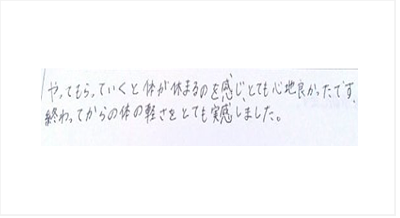 やってもらっていくと体が休まるのを感じ、とても心地良かったです、
終わってからの体の軽さをとても実感しました。